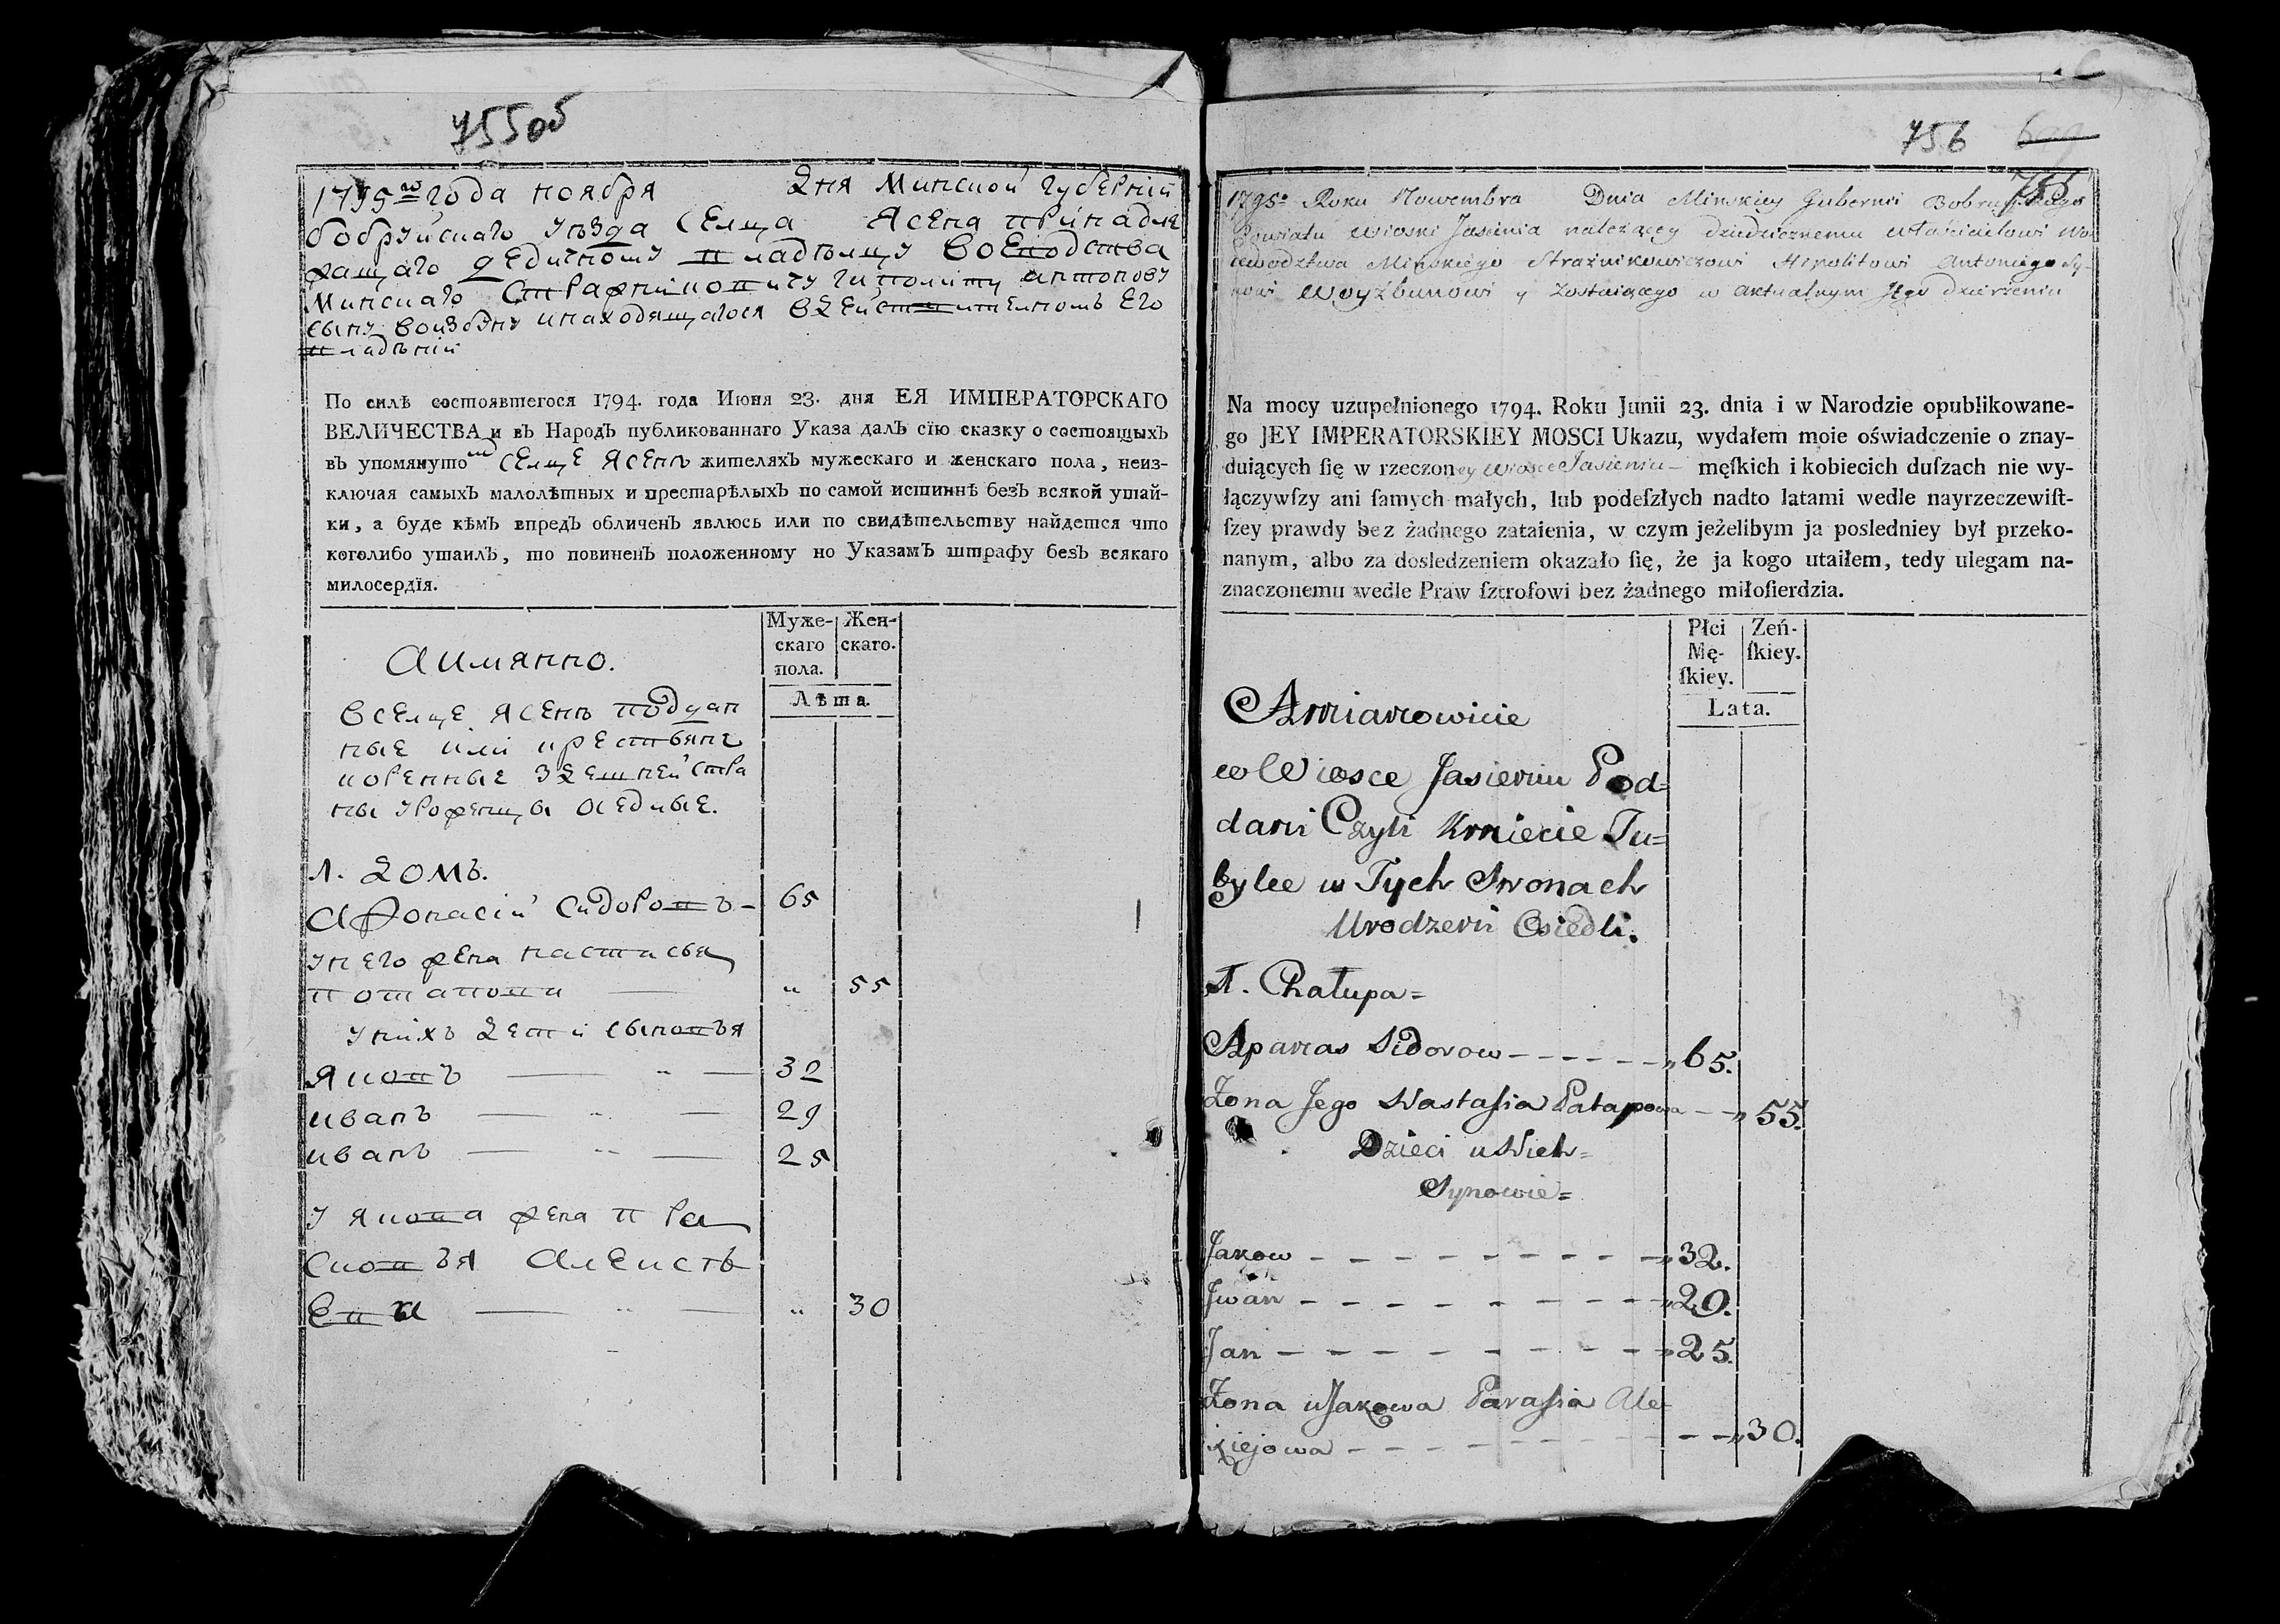 755об
1795го года ноября дня Минской губернїи
бобруйскаго уѣзда селца Ясена принадле
жащаго дедичному владѣлцу воеводства
Минскаго Стражниковичу гиполиту антонову
сыну воизбуну инаходящагося вдействителномъ Его
владѣнїи
По силѣ состоявшегося 1794. года Июня 23. дня ЕЯ ИМПЕРАТОРСКАГО
ВЕЛИЧЕСТВА и въ Народъ публикованнаго Указа далъ сїю сказку о состоящыхъ
въ упомянутомъ селце Ясенѣ жителяхъ мужескаго и женскаго пола, неиз-
ключая самыхъ малолѣтныхъ и престарѣлыхъ по самой истиннѣ безъ всякой утай-
ки, а буде кѣмъ впредъ обличенъ явлюсь или по свидѣтельству найдется что
коголибо утаилъ, то повиненъ положенному по Указамъ штрафу безъ всякаго
милосердїя.
Муже-
скаго
пола.
Жен-
скаго.
Лѣта.
Аимянно.
вселце Ясенѣ поддан
ные или крестьянѣ
коренные здешней стра
ны уроженцы оседлые.
1. домъ.
Афонасiй Сидоровъ - 65
унего жена настасья
потапова " 55
унихъ дети сыновья
Яковъ " 32
иванъ " 29
иванъ " 25
у Якова жена пра
сковья Алексѣ
Ева " 30
756
756
1795o Roku Nowembra Dnia Minskiey Gubernii Bobruyskiego
Powiatu Wioski Jasienia należącey dziedzicznemu właścicielowi Wo-
iewodztwa Minskiego Strażnikowiczowi Hipolitowi Antoniego Sy-
nowi Woyzbunowi y zostaiącego w aktualnym Jego dzierżeniu
Na mocy uzupełnionego 1794. Roku Junii 23. dnia i w Narodzie opublikowane-
go JEY IMPERATORSKIEY MOSCI Ukazu, wydałem moie oświadczenie o znay-
duiących ſię w rzeczoney wiosce Jasieniu - męſkich i kobiecich duſzach nie wy-
łączywſzy ani ſamych małych, lub podeſzłych nadto latami wedle nayrzeczewiſt-
ſzey prawdy bez żadnego zataienia, w czym jeżelibym ja posledniey był przeko-
nanym, albo za dosledzeniem okazało ſię, że ja kogo utaiłem, tedy ulegam na-
znaczonemu wedle Praw ſztrofowi bez żadnego miłoſierdzia.
Płci
Mę-
ſkiey.
Zeń-
ſkiey.
Lata.
Amianowicie
w Wiosce Jasieniu Pod=
dani Czyli Kmiecie Tu=
bylce w Tych Stronach
Urodzeni Osiedli.
1. Chałupa=
Apanas Sidorow - - - - - " 65.
Żona Jego Nastaſia Patapowa - - " 55.
Dzieci u Nich=
Synowie=
Jakow - - - - - - - - " 32.
Jwan - - - - - - - - " 29.
Jan - - - - - - - - " 25.
Żona u Jakowa Paraſia Ale-
xiejowa - - - - - - - - " 30.